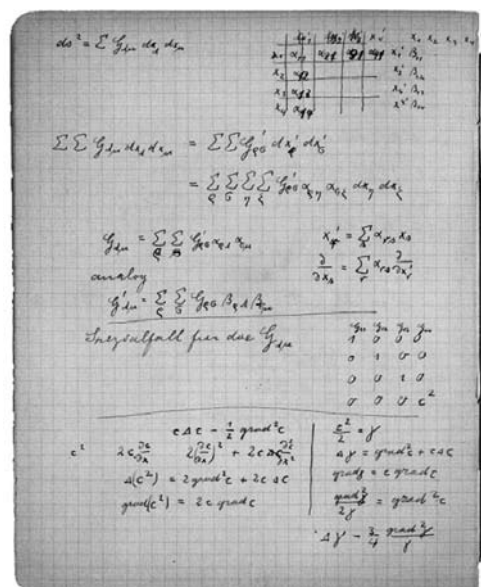 ds² = Σ G_λμ dx_λ dx_μ
x₁' x₂' x₃' x₄'
x₁ α₁₁ α₂₁ α₃₁ α₄₁
x₂ α₁₂
x₃ α₁₃
x₄ α₁₄
x₁ x₂ x₃ x₄
x₁' β₁₁
x₂'
x₃'
x₄'
Σ Σ G_λμ dx_λ dx_μ = Σ Σ G'_ρσ dx'_ρ dx'_σ
= Σ_ρ Σ_σ Σ_η Σ_ξ G'_ρσ α_ρη α_σξ dx_η dx_ξ
G_λμ = Σ_ρ Σ_σ G'_ρσ α_ρλ α_σμ
x'_r = Σ_s α_rs x_s
analog
∂/∂x_s = Σ_r α_rs ∂/∂x'_r
G'_λμ = Σ_ρ Σ_σ G_ρσ β_ρλ β_σμ
Spezialfall für das G_λμ
1 0 0 0
0 1 0 0
0 0 1 0
0 0 0 c²
cΔc − ½ grad²c
c² 2c ∂c/∂x 2(∂c/∂x)² + 2c ∂²c/∂x²
Δ(c²) = 2 grad²c + 2c Δc
grad(c²) = 2c grad c
c²/2 = γ
Δγ = grad²c + cΔc
gradγ = c grad c
grad²γ/2γ = grad²c
Δγ − 3/4 grad²γ/γ